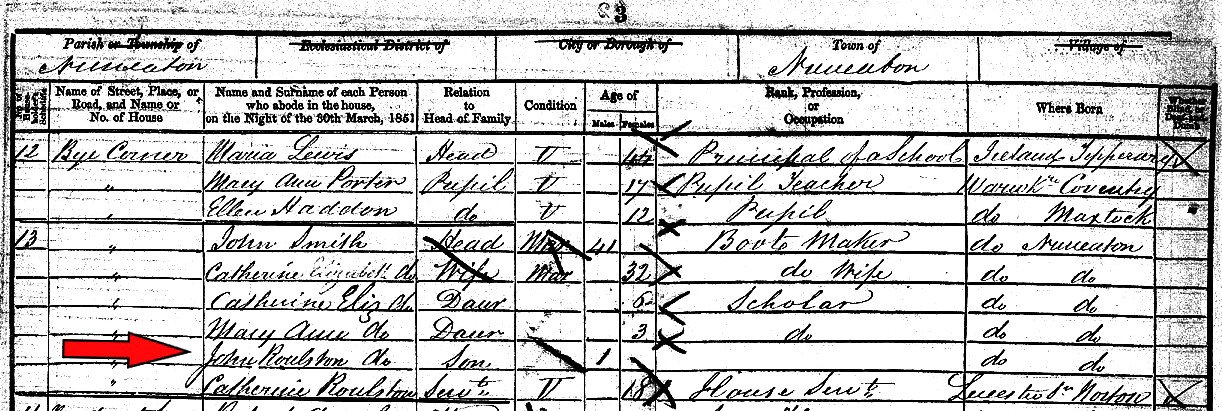 3
Parish or Township of Ecclesiastical District of City or Borough of Town of Village of
Nuneaton Nuneaton
Name of Street, Place, or Road, and Name or No. of House Name and Surname of each Person who abode in the house, on the Night of the 30th March, 1851 Relation to Head of Family Condition Age of Males Females Rank, Profession, or Occupation Where Born
12 Bye Corner Maria Lewis Head U Principal of a School Ireland Tipperary
" Mary Ann Porter Pupil U 17 Pupil Teacher Warwk Coventry
" Ellen Haddon do U 12 Pupil do Maxtock
13 " John Smith Head Mar 41 Boots Maker do Nuneaton
" Catherine Elizabeth do Wife Mar 32 do Wife do do
" Catherine Eliz do Daur 6 Scholar do do
" Mary Ann do Daur 3 do do do
" John Roulston do Son 1 do do
" Catherine Roulston Servt U 18 House Servt Leicestr Norton